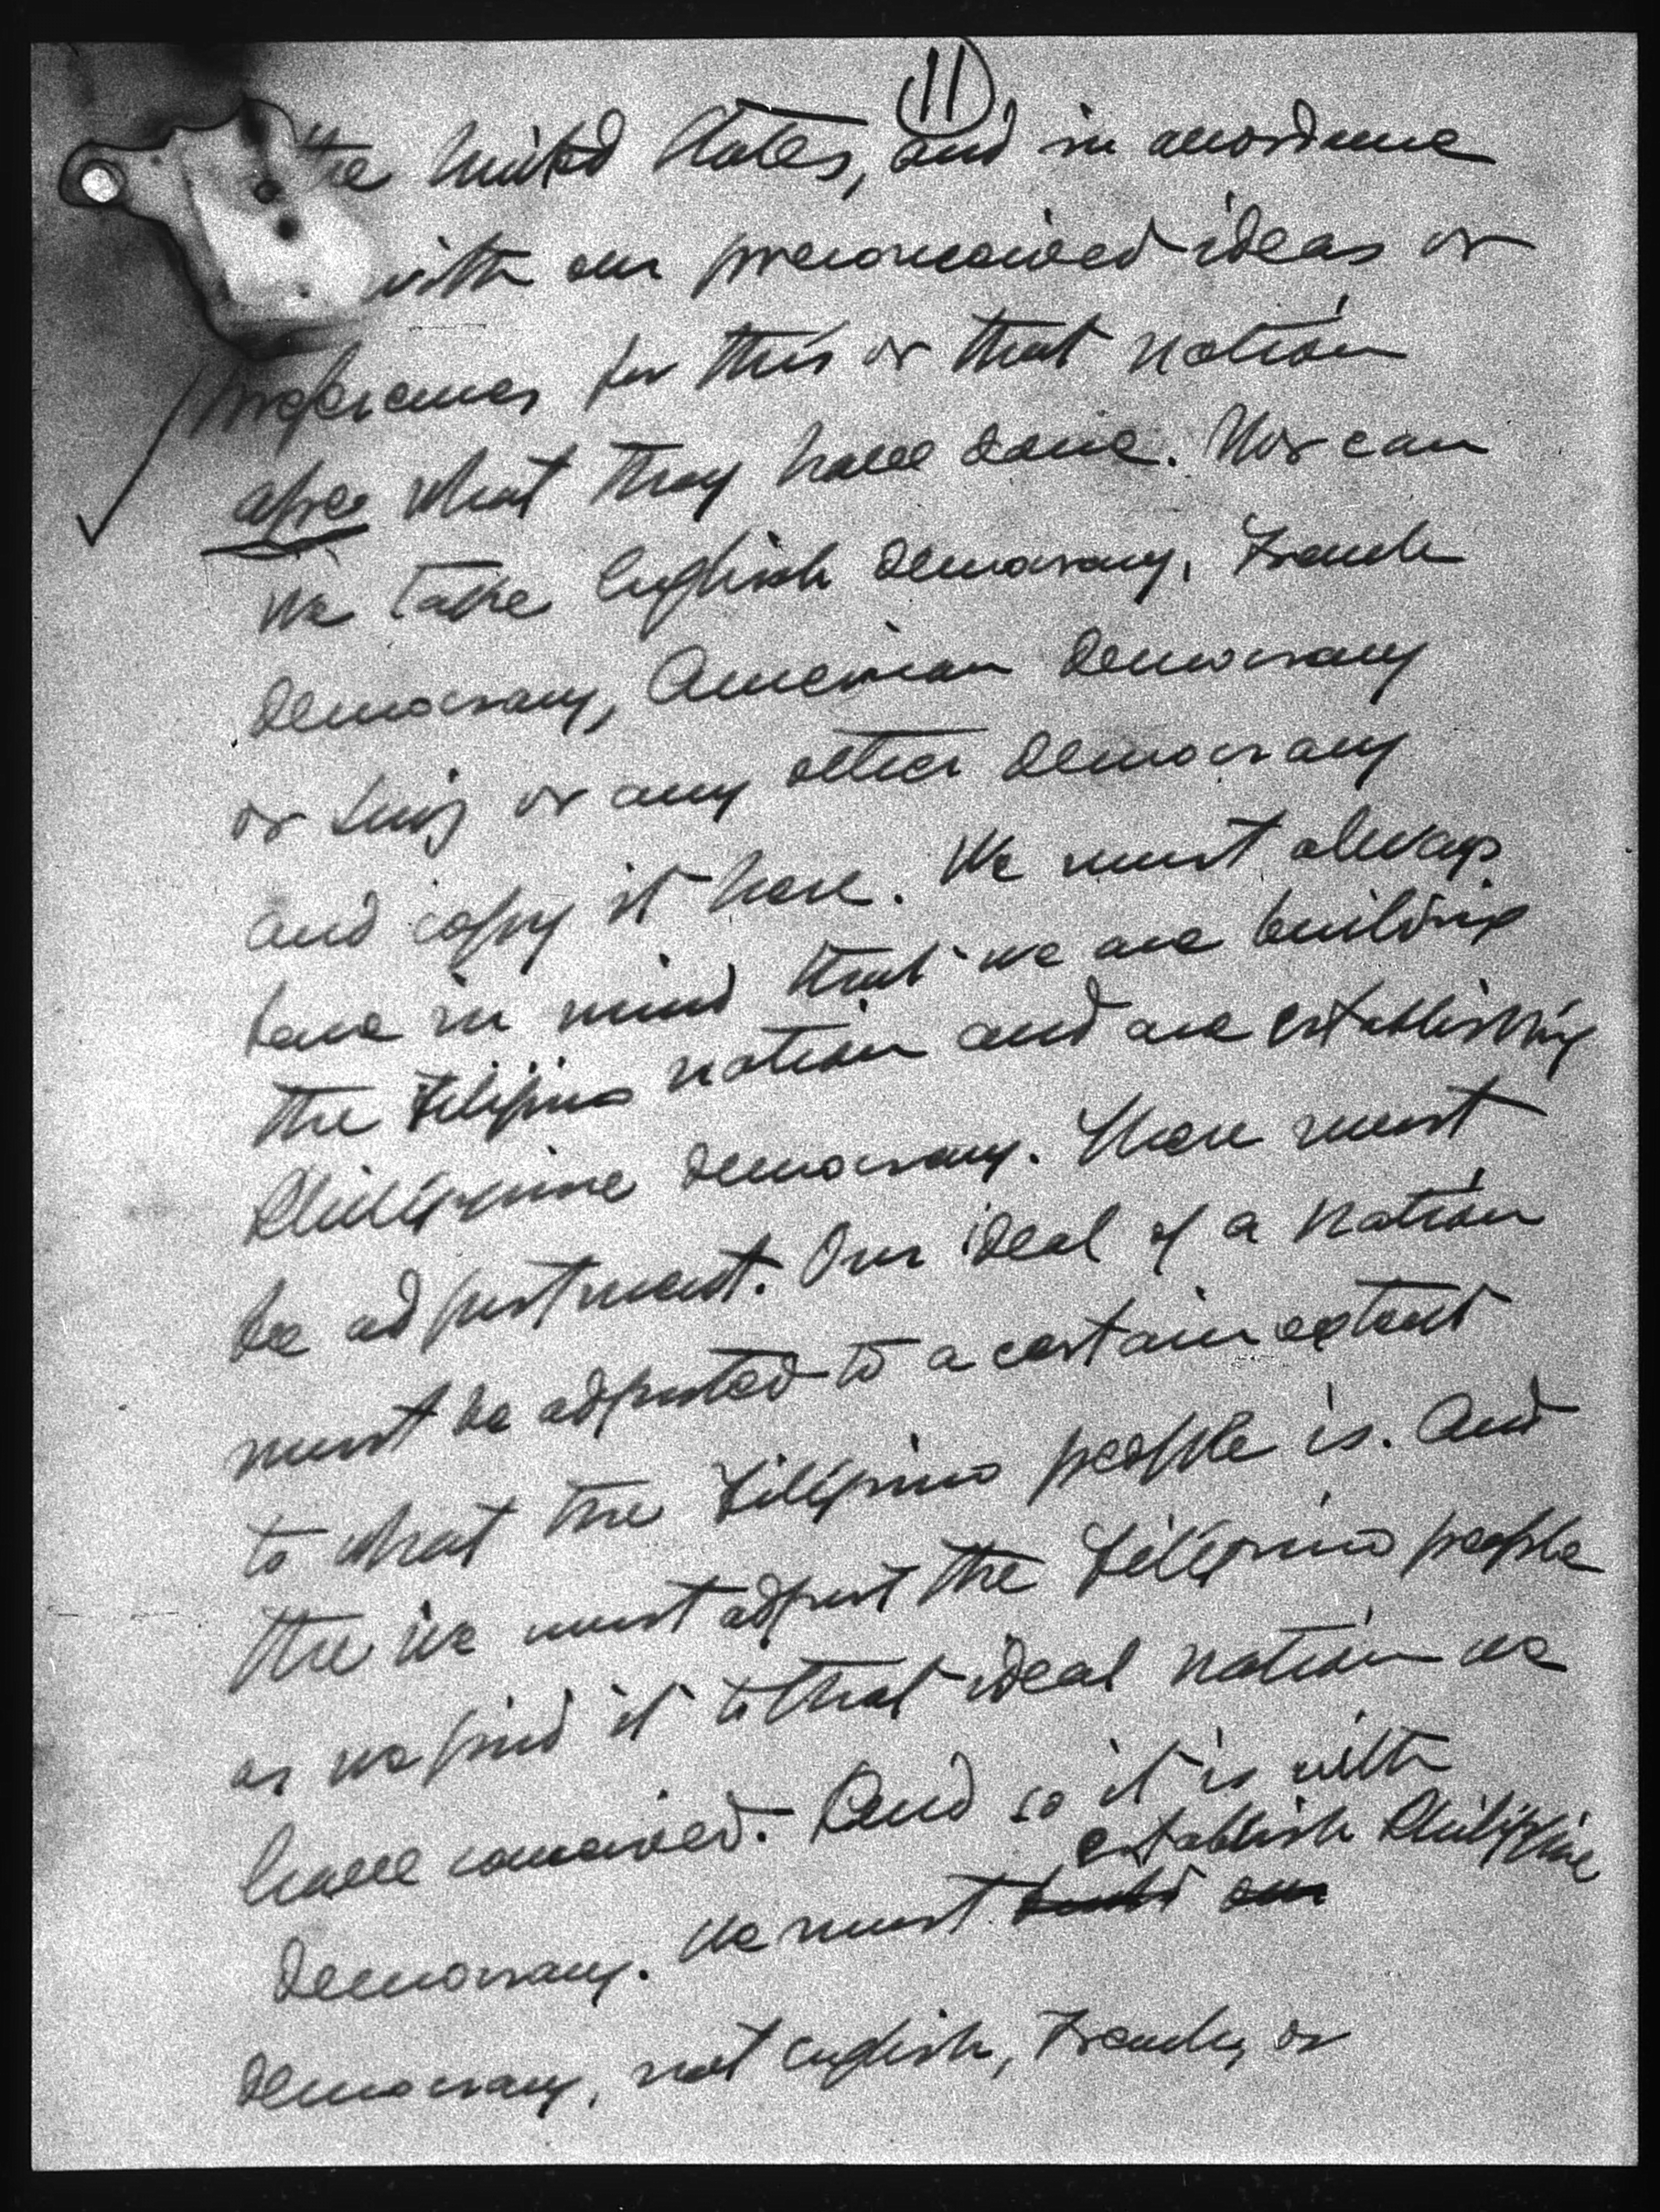 11
the United States, and in accordance
with our preconceived ideas or
preferences for this or that nation
what they have done. Nor can
we take English democracy, French
democracy, American democracy
or this or any other democracy
and copy it here. We must always
have in mind that we are building
the Filipino nation and are establishing
Philippine democracy. There must
be adjustment. Our ideal of a nation
must be adjusted to a certain extent
to what the Filipino people is. And
the we must adjust the Filipino people
as we find it to that ideal nation we
have conceived. And so it is with
establish Philippine
democracy. We must
democracy, not English, French, or